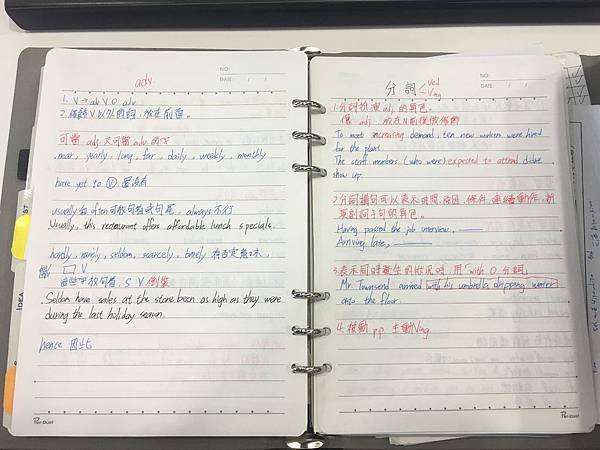 adv
NO:
DATE: / /
1. V → adv V O adv
2. 修飾V以外的詞，放在前面。
可當 adj 又可當 adv 的字
near, yearly, long, far, daily, weekly, monthly
have yet to Ⓥ 還沒有
usually和often可放句首或句尾，always不行
Usually, this restaurant offers affordable lunch specials.
hardly, rarely, seldom, scarcely, barely 有否定意味，
V
這些字放句首，S V 倒裝
Seldom have sales at the store been as high as they were
during the last holiday season.
hence 因此
Pen·Duet
分詞 Ved
Ving
NO:
DATE: / /
1. 分詞扮演 adj 的角色。
像 adj 放在N前後做修飾
To meet increasing demand, ten new workers were hired
for the plant.
The staff members (who were) expected to attend didn't
show up.
2. 分詞構句可以表示時間、原因、條件、連續動作，扮
演副詞子句的角色。
Having passed the job interview,
Arriving late,
3. 表示同時發生的狀況時，用「with O 分詞」
Mr. Townsend arrived with his umbrella dripping water
onto the floor.
4. 被動 pp 主動 Ving
Pen·Duet
IDEA